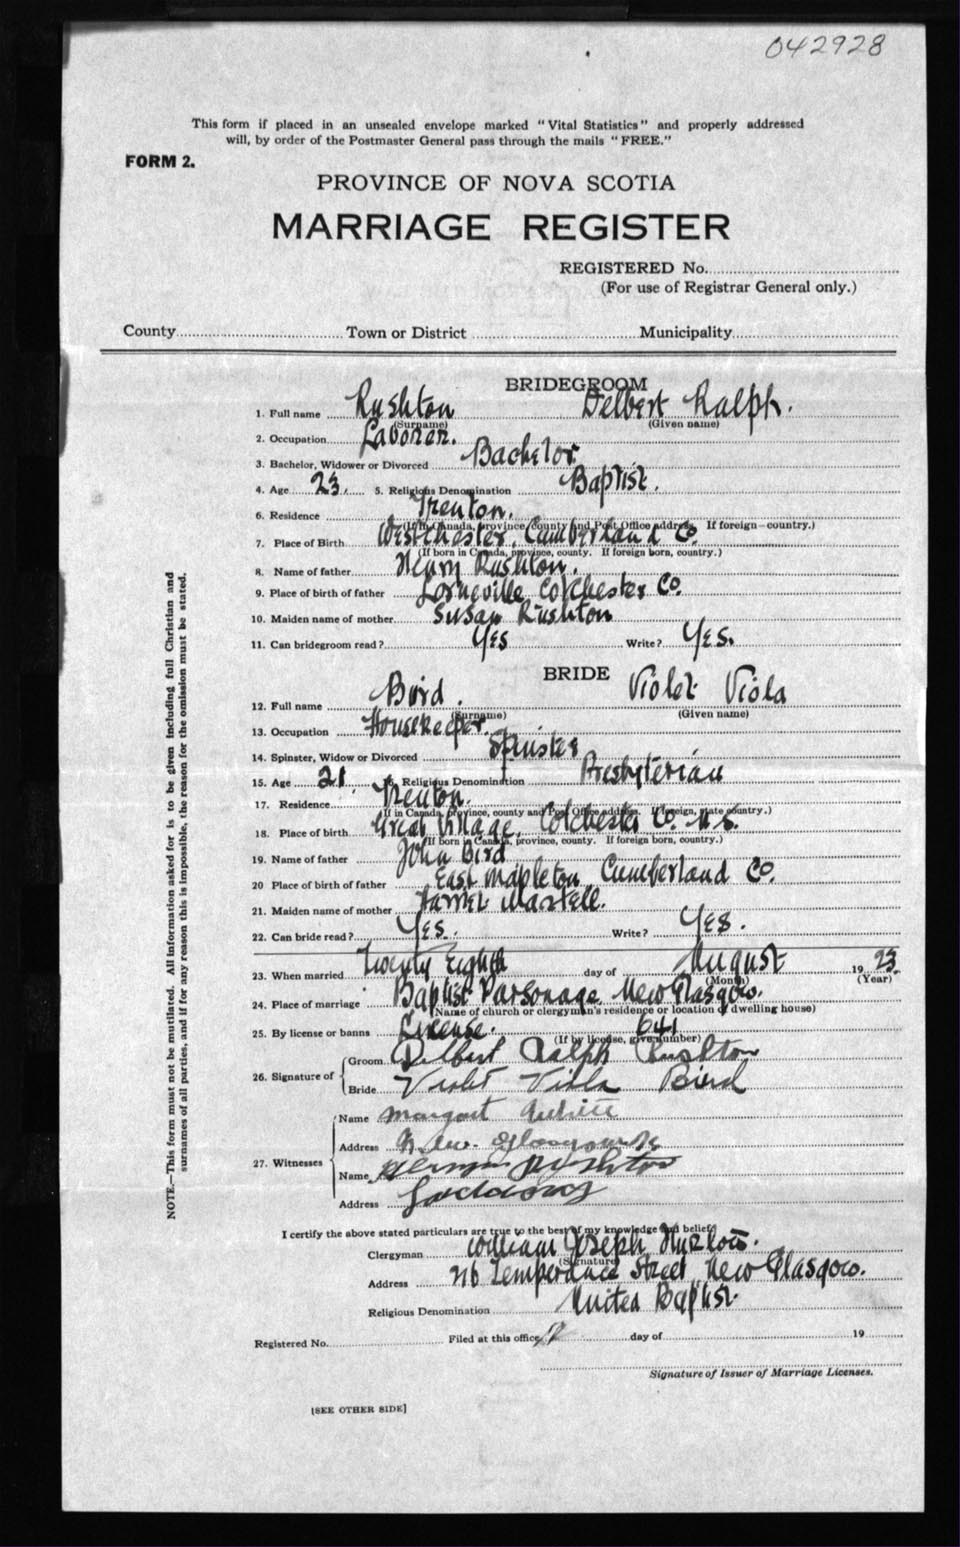 042928
This form if placed in an unsealed envelope marked "Vital Statistics" and properly addressed
will, by order of the Postmaster General pass through the mails "FREE."
FORM 2.
PROVINCE OF NOVA SCOTIA
MARRIAGE REGISTER
REGISTERED No.
(For use of Registrar General only.)
County Town or District Municipality
BRIDEGROOM
1. Full name Rushton Delbert Ralph.
(Surname) (Given name)
2. Occupation Laborer.
3. Bachelor, Widower or Divorced Bachelor
4. Age 23. 5. Religious Denomination Baptist.
6. Residence Trenton.
(If in Canada, province, county and Post Office address. If foreign—country.)
7. Place of Birth Westchester, Cumberland Co
(If born in Canada, province, county. If foreign born, country.)
8. Name of father Henry Rushton.
9. Place of birth of father Lorneville Colchester Co.
10. Maiden name of mother Susan Rushton
11. Can bridegroom read? Yes Write? Yes.
BRIDE
12. Full name Bird. Violet Viola
(Surname) (Given name)
13. Occupation Housekeeper.
14. Spinster, Widow or Divorced Spinster
15. Age 21. 16. Religious Denomination Presbyterian
17. Residence Trenton.
(If in Canada, province, county and Post Office address. If foreign, state country.)
18. Place of birth Great Village, Colchester Co. N.S.
(If born in Canada, province, county. If foreign born, country.)
19. Name of father John Bird
20 Place of birth of father East Mapleton Cumberland Co.
21. Maiden name of mother Martell.
22. Can bride read? Yes. Write? Yes.
23. When married Twenty Eighth day of August 1923.
(Month) (Year)
24. Place of marriage Baptist Parsonage New Glasgow.
(Name of church or clergyman's residence or location of dwelling house)
25. By license or banns License. 641
(If by license, give number)
26. Signature of Groom Delbert Ralph Rushton
Bride Violet Viola Bird
27. Witnesses Name Margaret
Address New Glasgow
Name Rushton
Address
I certify the above stated particulars are true to the best of my knowledge and belief.
Clergyman William Joseph
(Signature)
Address 216 Temperance Street, New Glasgow.
Religious Denomination United Baptist.
Registered No. Filed at this office day of 19
Signature of Issuer of Marriage Licenses.
[SEE OTHER SIDE]
NOTE.—This form must not be mutilated. All information asked for is to be given including full Christian and
surnames of all parties, and if for any reason this is impossible, the reason for the omission must be stated.